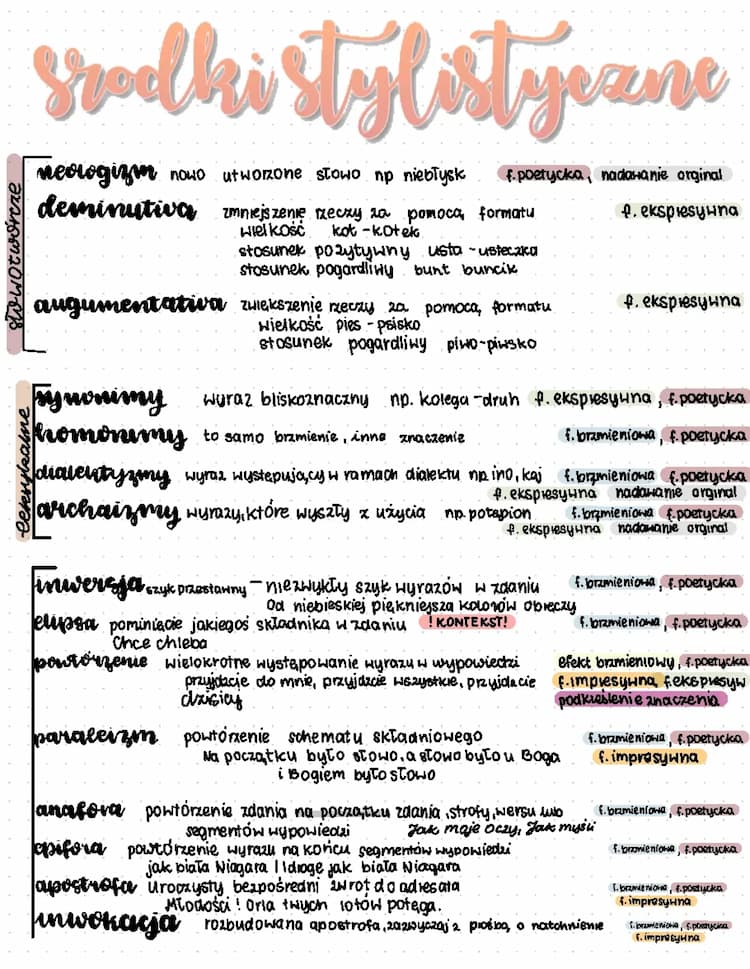 środki stylistyczne
słowotwórcze
neologizm nowo utworzone słowo np niebłysk f.poetycka, nadawanie orginal
deminutiva zmniejszenie rzeczy za pomocą formatu f. ekspresywna
wielkość kot-kotek
stosunek pozytywny usta-usteczka
stosunek pogardliwy bunt buncik
augumentativa zwiększenie rzeczy za pomocą formatu f. ekspresywna
wielkość pies-psisko
stosunek pogardliwy piwo-piwsko
leksykalne
synonimy wyraz bliskoznaczny np. kolega-druh f. ekspresywna, f.poetycka
homonimy to samo brzmienie, inne znaczenie f.brzmieniowa, f.poetycka
dialektyzmy wyraz występujący w ramach dialektu np ino, kaj f.brzmieniowa, f.poetycka
f. ekspresywna nadawanie orginal
archaizmy wyrazy, które wyszły z użycia np. potspion f.brzmieniowa, f.poetycka
f. ekspresywna nadawanie orginal
inwersja szyk przestawny - niezwykły szyk wyrazów w zdaniu f.brzmieniowa, f.poetycka
Od niebieskiej piękniejsza kolorów obręczy
elipsa pominięcie jakiegoś składnika w zdaniu !KONTEKST! f.brzmieniowa, f.poetycka
Chce chleba
powtórzenie wielokrotne występowanie wyrazu w wypowiedzi efekt brzmieniowy, f.poetycka
przyjdźcie do mnie, przyjdźcie wszystkie, przyjdźcie f.impresywna, f.ekspresyw
dzisiej podkreślenie znaczenia
paralelizm powtórzenie schematu składniowego f.brzmieniowa, f.poetycka
Na początku było słowo, a słowo było u Boga f. impresywna
i Bogiem było słowo
anafora powtórzenie zdania na początku zdania, strofy, wersu lub f.brzmieniowa, f.poetycka
segmentów wypowiedzi Jak moje oczy, Jak myśli
epifora powtórzenie wyrazu na końcu segmentów wypowiedzi f.brzmieniowa, f.poetycka
jak biała Niagara I drogę jak biała Niagara
apostrofa uroczysty bezpośredni zwrot do adresata f.brzmieniowa, f.poetycka
Młodości! Orla twych lotów potęga. f. impresywna
inwokacja rozbudowana apostrofa, zazwyczaj z prośbą o natchnienie f.brzmieniowa, f.poetycka
f. impresywna